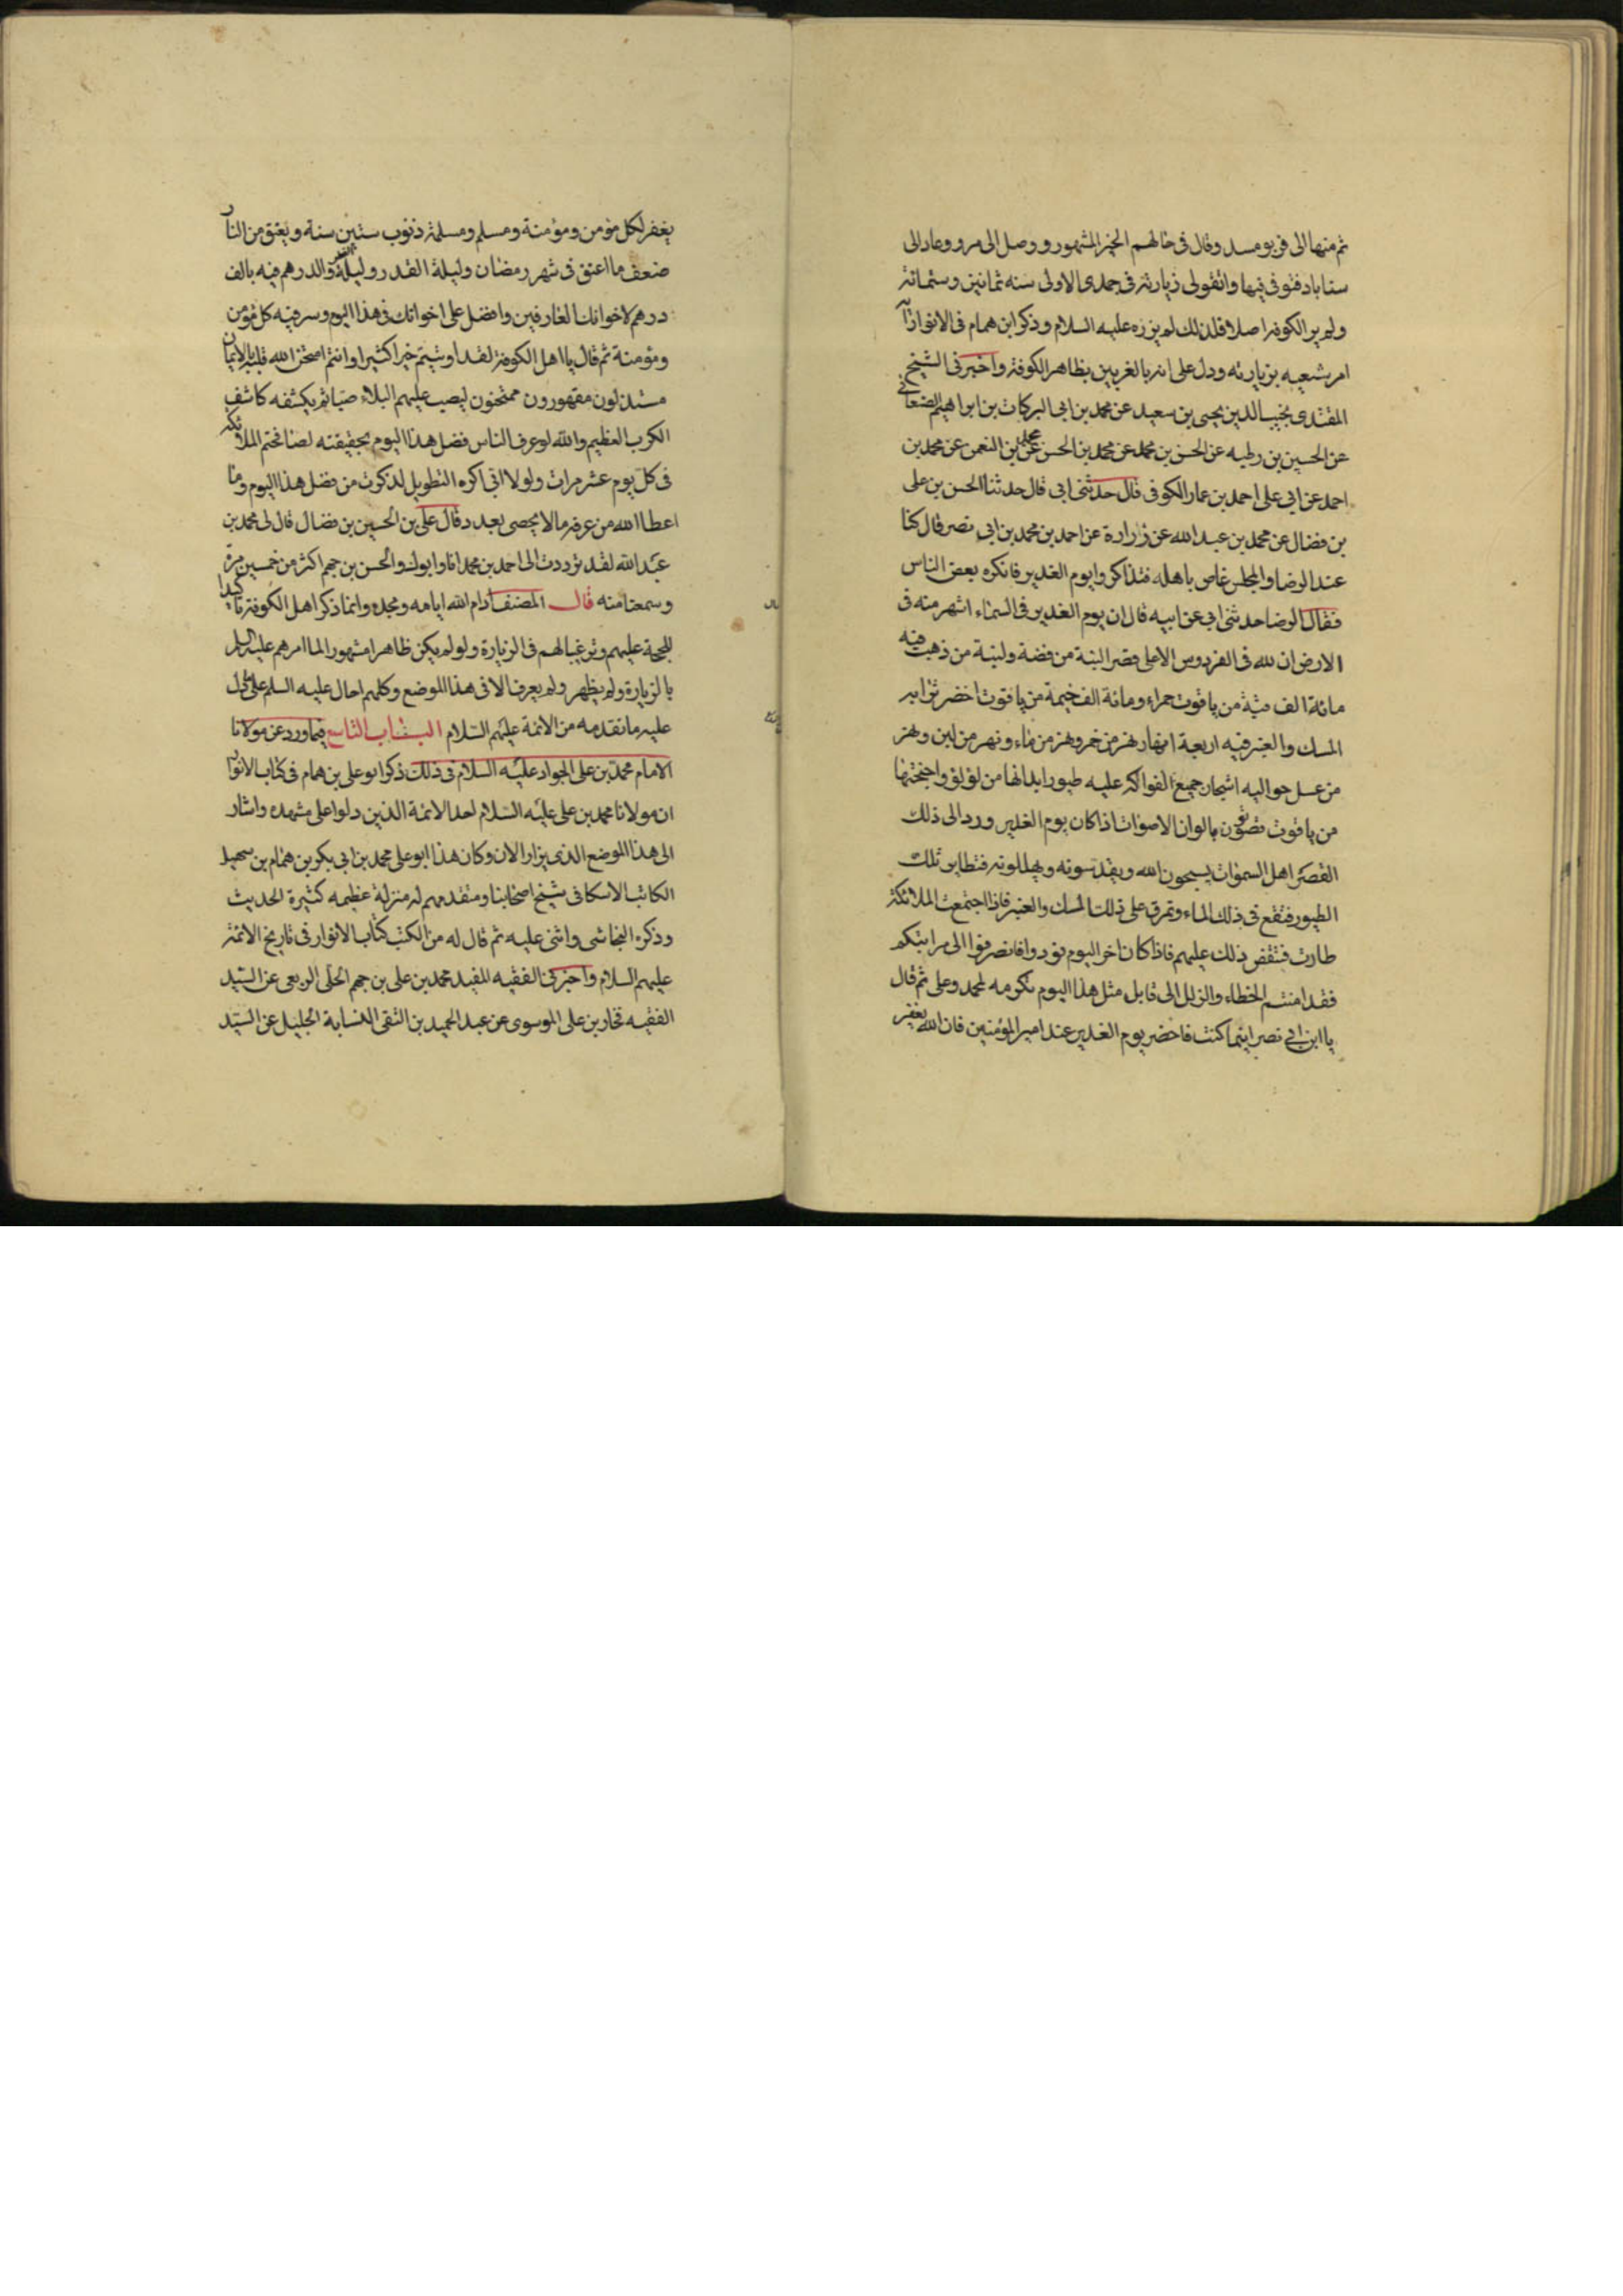 ثم منها الى قريومسد وقال فى حالهم الخبر المشهور ووصل الى مرو وعاد الى
سناباد فتوفى فيها واتفق لى زيارته فى جمدى الاولى سنه ثمانين وستمائة
ولم ير الكوفة اصلا فلذلك لم يزره عليه السلام وذكر ابن همام فى الانوار انه
امر شيعيه بزيارته ودل على انه بالغريين بظاهر الكوفة واخبرنى الشيخ
المقتدى نجيب الدين يحيى بن سعيد عن محمد بن ابى البركات بن ابراهيم الصنعانى
عن الحسين بن رطبه عن الحسن بن محمد عن محمد بن الحسن عن محمد بن النعمن عن محمد بن
احمد عن ابى على احمد بن عمار الكوفى قال حدثنى ابى قال حدثنا الحسن بن على
بن فضال عن محمد بن عبد الله عن زرارة عن احمد بن محمد بن ابى نصر قال كنا
عند الرضا والمجلس غاص باهله فتذاكروا يوم الغدير فانكره بعض الناس
فقال الرضا حدثنى ابى عن ابيه قال ان يوم الغدير فى السماء اشهر منه فى
الارض ان لله فى الفردوس الاعلى قصر البنة من فضة ولبنة من ذهب فيه
مائة الف قبة من ياقوت حمراء ومائة الف خيمة من ياقوت اخضر ترابه
المسك والعنبر فيه اربعة انهار نهر من خمر ونهر من ماء ونهر من لبن ونهر
من عسل حواليه اشجار جميع الفواكه عليه طيور ابدانها من لؤلؤ واجنحتها
من ياقوت تصوت بالوان الاصوات اذا كان يوم الغدير ورد الى ذلك
القصر اهل السموات يسبحون الله ويقدسونه ويهللونه فتطاير تلك
الطيور فتقع فى ذلك الماء وتمرق على ذلك المسك والعنبر فاذا اجتمعت الملائكة
طارت فتنفض ذلك عليهم فاذا كان اخر اليوم نودوا انصرفوا الى مراتبكم
فقد امنتم الخطاء والزلل الى قابل مثل هذا اليوم تكرمه لمحمد وعلى ثم قال
يا ابن ابى نصر اينما كنت فاحضر يوم الغدير عند امير المؤمنين فان الله يغفر
يغفر لكل مؤمن ومؤمنة ومسلم ومسلمة ذنوب ستين سنة ويعتق من النار
ضعف ما اعتق فى شهر رمضان وليلة القدر وليلة الفطر والدرهم فيه بالف
درهم لاخوانك العارفين وافضل على اخوانك فى هذا اليوم وسر فيه كل مؤمن
ومؤمنة ثم قال يا اهل الكوفة لقد اوتيتم خيرا كثيرا وانتم امتحن الله قلبه بالايمان
مستذلون مقهورون ممتحنون ليصب عليهم البلاء صبا ثم يكشفه كاشف
الكرب العظيم والله لو عرف الناس فضل هذا اليوم بحقيقته لصافحتهم الملائكة
فى كل يوم عشر مرات ولولا انى اكره التطويل لذكرت من فضل هذا اليوم وما
اعطا الله من عرفه ما لا يحصى بعدد قال على بن الحسين بن فضال قال لى محمد بن
عبد الله لقد ترددت الى احمد بن محمد انا وابوك والحسن بن جهم اكثر من خمسين مرة
وسمعنا منه قال المصنف ادام الله ايامه ومجده وانما ذكر اهل الكوفة تاكيدا
للحجة عليهم وترغيبا لهم فى الزيارة ولو لم يكن ظاهرا مشهورا لما امرهم عليه السلم
بالزيارة ولم يظهر ولم يعرف الا فى هذا الموضع وكلهم احال عليه السلم على ما دل
عليه ما تقدمه من الائمة عليهم السلام الباب التاسع فيما ورد عن مولانا
الامام محمد بن على الجواد عليه السلام فى ذلك ذكر ابو على بن همام فى كتاب الانوار
ان مولانا محمد بن على عليه السلام احد الائمة الذين دلوا على مشهده واشار
الى هذا الموضع الذى يزار الان وكان هذا ابو على محمد بن ابى بكر بن همام بن سهيل
الكاتب الاسكافى شيخ اصحابنا ومتقدمهم له منزلة عظيمه كثيرة الحديث
وذكره النجاشى واثنى عليه ثم قال له من الكتب كتاب الانوار فى تاريخ الائمة
عليهم السلام واخبرنى الفقيه المفيد محمد بن على بن جهم الحلى الربعى عن السيد
الفقيه فخار بن على الموسوى عن عبد الحميد بن التقى النسابة الجليل عن السيد